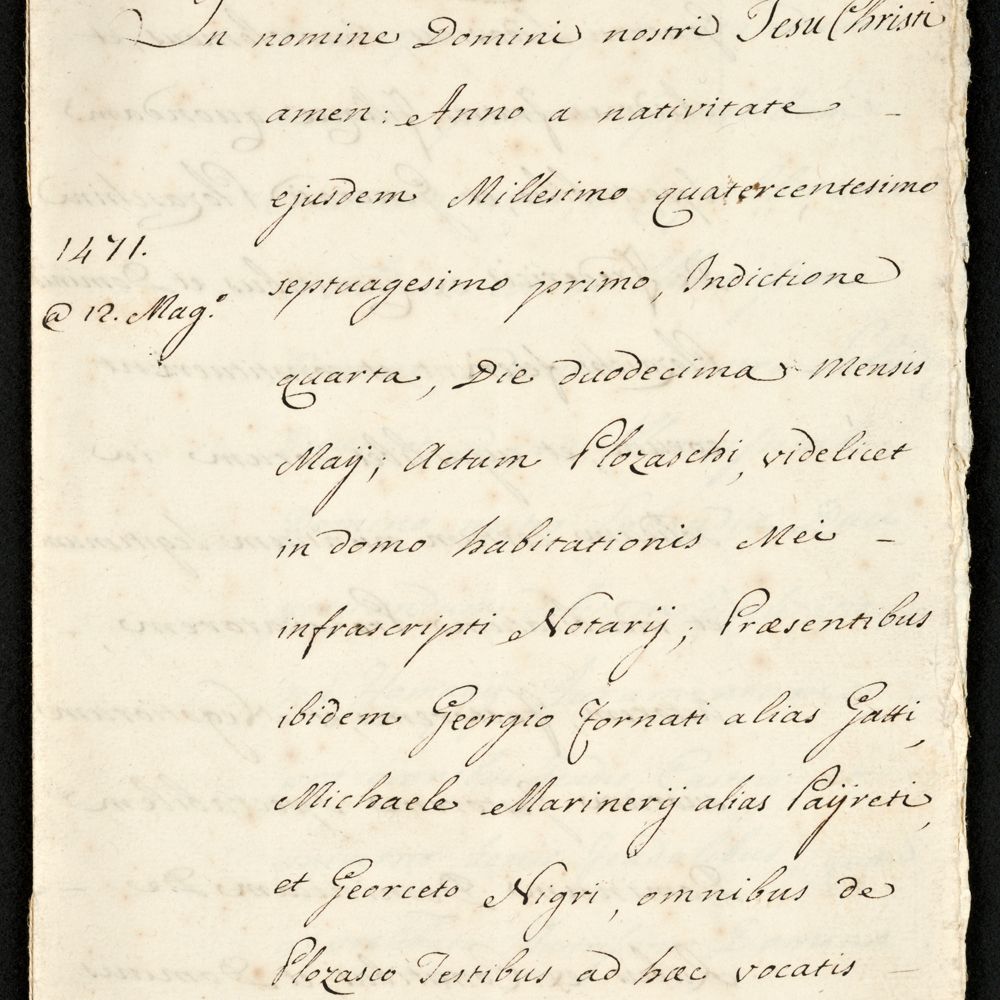 In nomine Domini nostri Jesu Christi
amen: Anno a nativitate
ejusdem Millesimo quatercentesimo
1471.
@ 12. Mag.º
septuagesimo primo, Indictione
quarta, Die duodecima Mensis
Maij; Actum Plozaschi, videlicet
in domo habitationis Mei -
infrascripti Notarij; Præsentibus
ibidem Georgio Tornati alias Gatti,
Michaele Marinerij alias Paijreti,
et Georceto Nigri, omnibus de
Plozasco Testibus ad hæc vocatis -